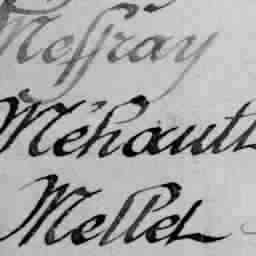 Messray
Méhault
Mellet